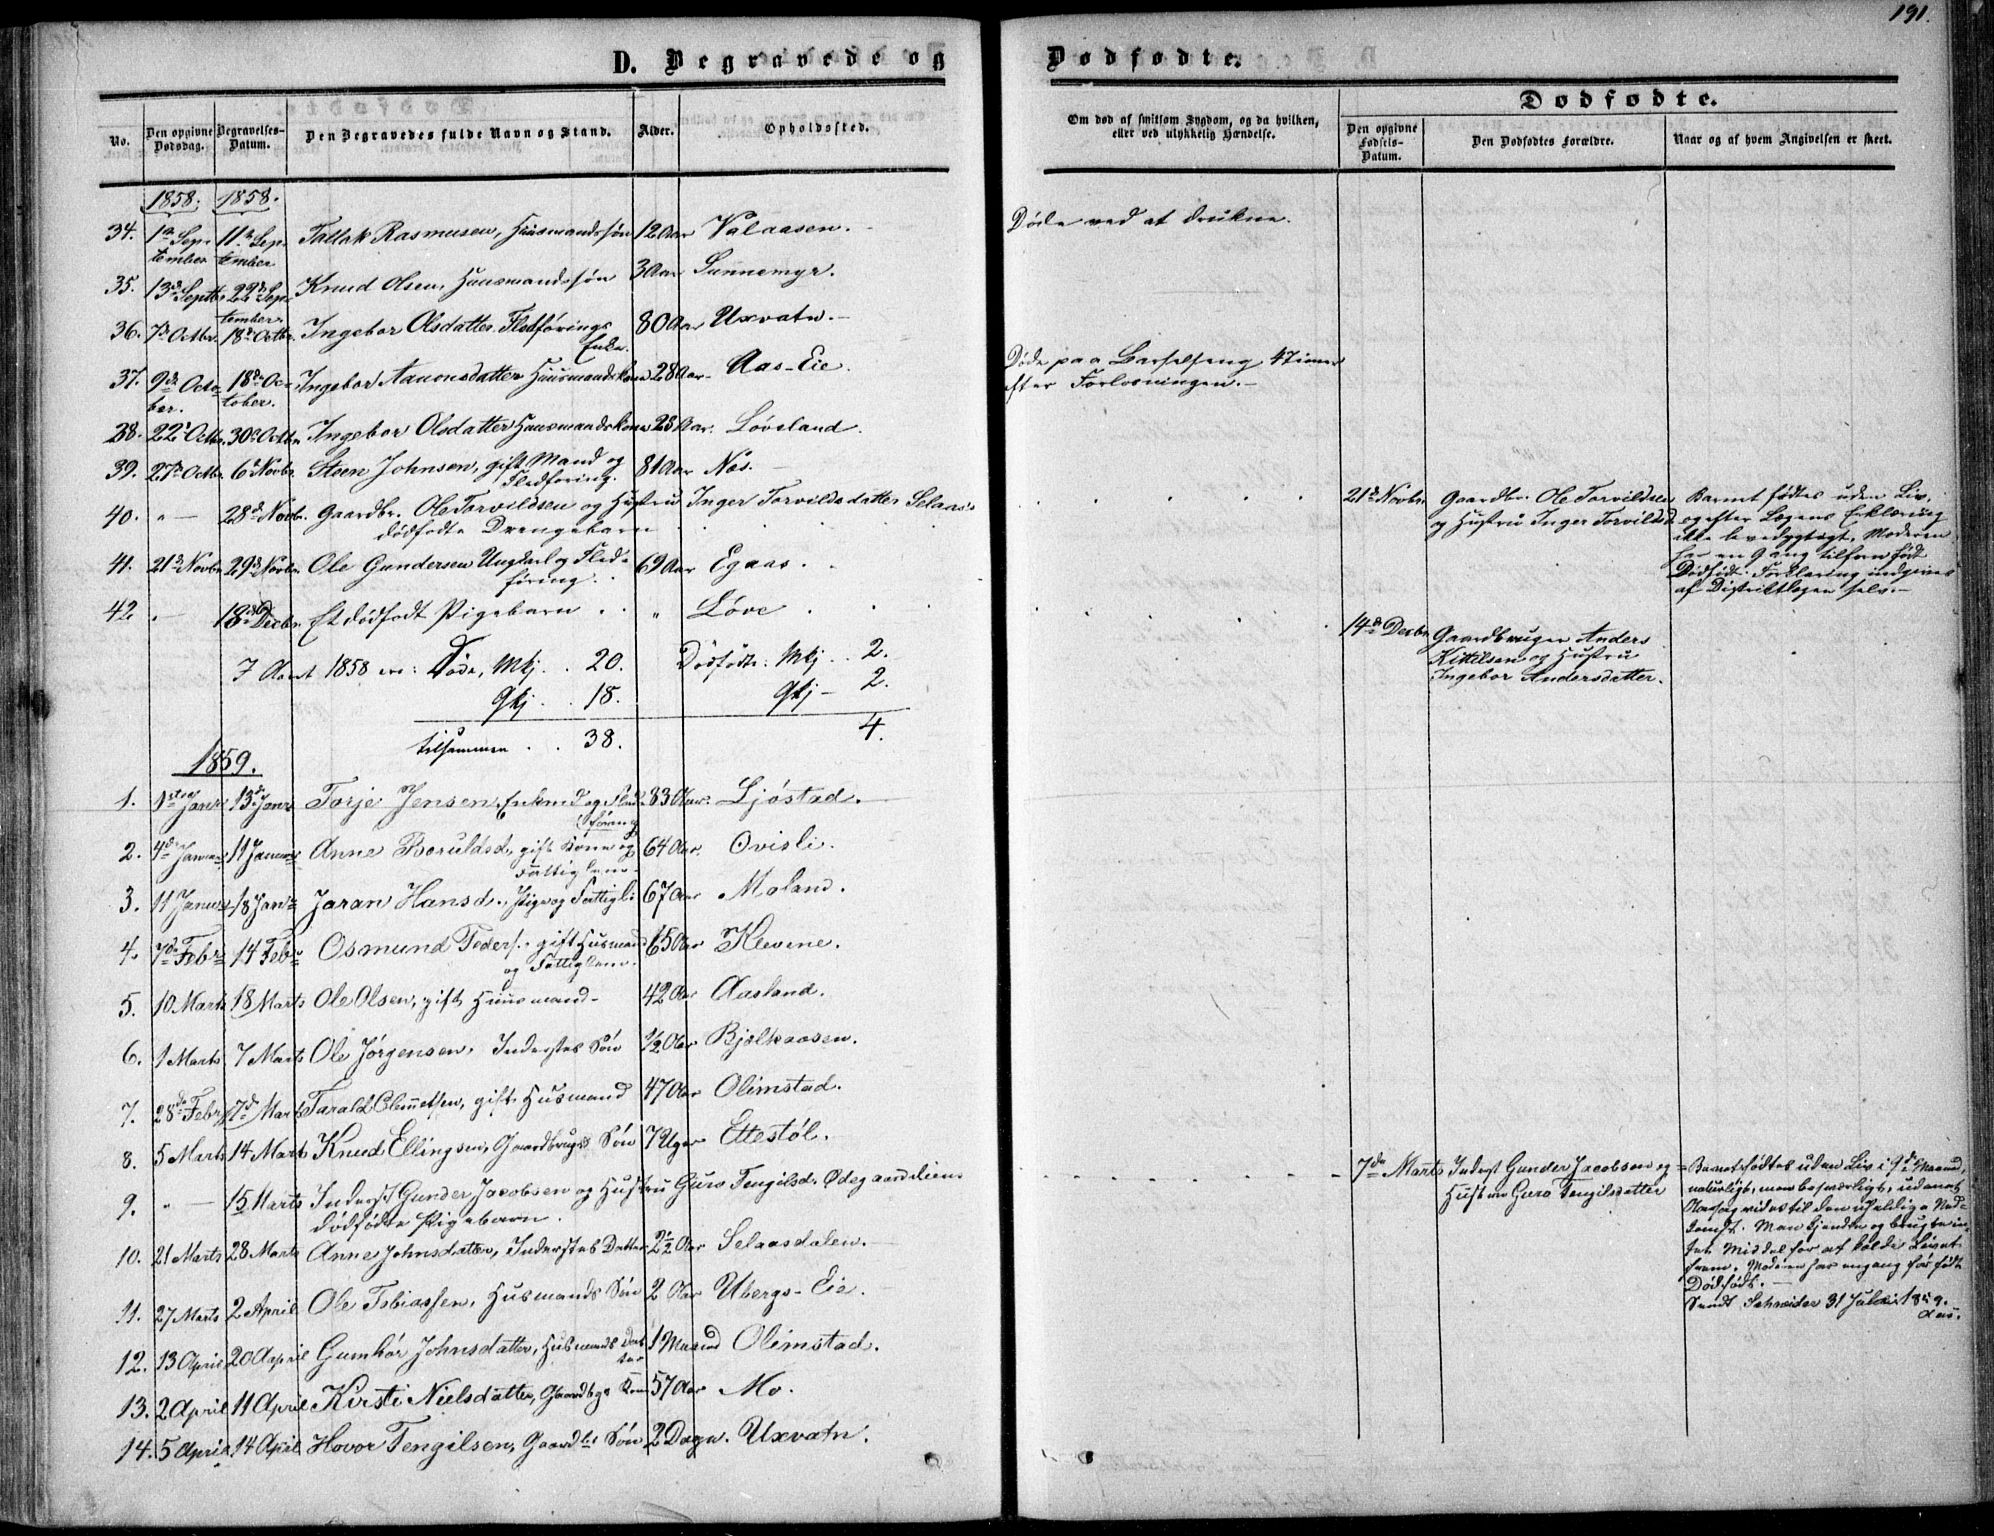 191.
D. Begravede og
Dødfødte.
Dødfødte.
No.
Den opgivne Dødsdag.
Begravelses-Datum.
Den Begravedes fulde Navn og Stand.
Alder.
Opholdssted.
Om død af smitsom Sygdom, og da hvilken, eller ved ulykkelig Hændelse.
Den opgivne Fødsels-Datum.
Den Dødfødtes Forældre.
Naar og af hvem Angivelsen er skeet.
1858. 1858.
34. 1ste September 11te September Tallak Rasmusen, Huusmandssøn 12 Aar Valaasen. Døde ved at drukne.
35. 13de Septbr 22de September Knud Olsen, Huusmandssøn 3 Aar Sunnemyr.
36. 7de Octbr. 18de Octbr. Ingebor Olsdatter Fledførings Enke. 80 Aar Uxvatn.
37. 9de October. 18de October. Ingebor Aanonsdatter Huusmandskone 28 Aar Aas-Eie. Døde paa Barselseng 4 Timer
efter Forløsningen.
38. 22de Octbr. 30te Octbr. Ingebor Olsdatter Huusmandskone 28 Aar. Løvsland.
39. 27de Octbr. 6te Novbr. Steen Johnsen, gift Mand og Fledføring. 81 Aar Næs.
40. " — 28de Novbr. Gaardbr. Ole Torvildsen og Hustru Inger Torvildsdatter Selaas's
dødfødte Drengebarn
21de Novbr. Gaardbr. Ole Torvildsen
og Hustru Inger Torvildsd.
Barnet fødtes uden Liv,
og efter Lægens Erklæring
ikke bevægtigt. Moderen
har en Gang tilforn født
Dødfødt. Forklaring indgives
af Distriktlægen selv.
41. 21de Novbr. 29de Novbr. Ole Gundersen Ungkarl og Fledføring. 69 Aar Egaas.
42. " — 18de Decbr. Et dødfødt Pigebarn " Løve
14de Decbr. Gaardbruger Anders
Kittilsen og Hustru
Ingebor Andersdatter.
I Aaret 1858 ere: Døde, Mkj. . 20. Dødfødte: Mkj . . 2.
Qkj . . 18. Qkj — 2.
tilsammen . . 38. 4.
1859.
1. 1ste Janr 13de Janr Torje Jensen, Enkmd og Fledføring 83 Aar. Ljøstad.
2. 4de Januar 11 Januar Anne Boruldsd., gift Kone og Fattiglem 64 Aar. Ovisli.
3. 11 Januar 18 Januar Jaran Hansd., Pige og Fattigl. 67 Aar Moland.
4. 7de Febr 14 Febr Osmund Peders. gift Husmand og Fattiglem. 65 Aar Klevene.
5. 10 Marts 18 Marts Ole Olsen, gift Huusmand 42 Aar Aasland.
6. 1 Marts 7 Marts Ole Jørgensen, Inderstes Søn 1/2 Aar Bjelkaasen.
7. 28de Febr 7de Marts Tarald Clemetsen, gift Husmand 47 Aar Olimstad.
8. 5 Marts 14 Marts Knud Ellingsen, Gaardbrugs Søn 7 Uger Ettestøl.
9. " — 15 Marts Inderst Gunder Jacobsen og Hustru Guro Tengilsd. Ødegaardliens
dødfødte Pigebarn.
7de Marts Inderst Gunder Jacobsen og
Hustru Guro Tengilsdatter
Barnet fødtes uden Liv i 9de Maaned,
naturligt, men besværligt, uden at
Aarsag vides til den uheldige Nedkomst. Man kjendte og brugte intet Middel for at kalde Livet
frem. Moderen har engang før født
Dødfødt.
Sendt Schneider 31 Juli 1859.
10. 21 Marts 28 Marts Anne Johnsdatter, Inderstes Datter 2 1/2 Aar Selaasdalen.
11. 27 Marts 2 April Ole Tobiassen, Husmands Søn 2 Aar Ubergs-Eie.
12. 13 April 20 April Gumhør Johnsdatter, Husmands Datter 1 Maaned Olimstad.
13. 2 April 11 April Kirsti Nielsdatter, Gaardbgs Kone 57 Aar Mo.
14. 5 April 14 April Hovor Tengilsen, Gaardbs Søn 2 Dage. Uxvatn.